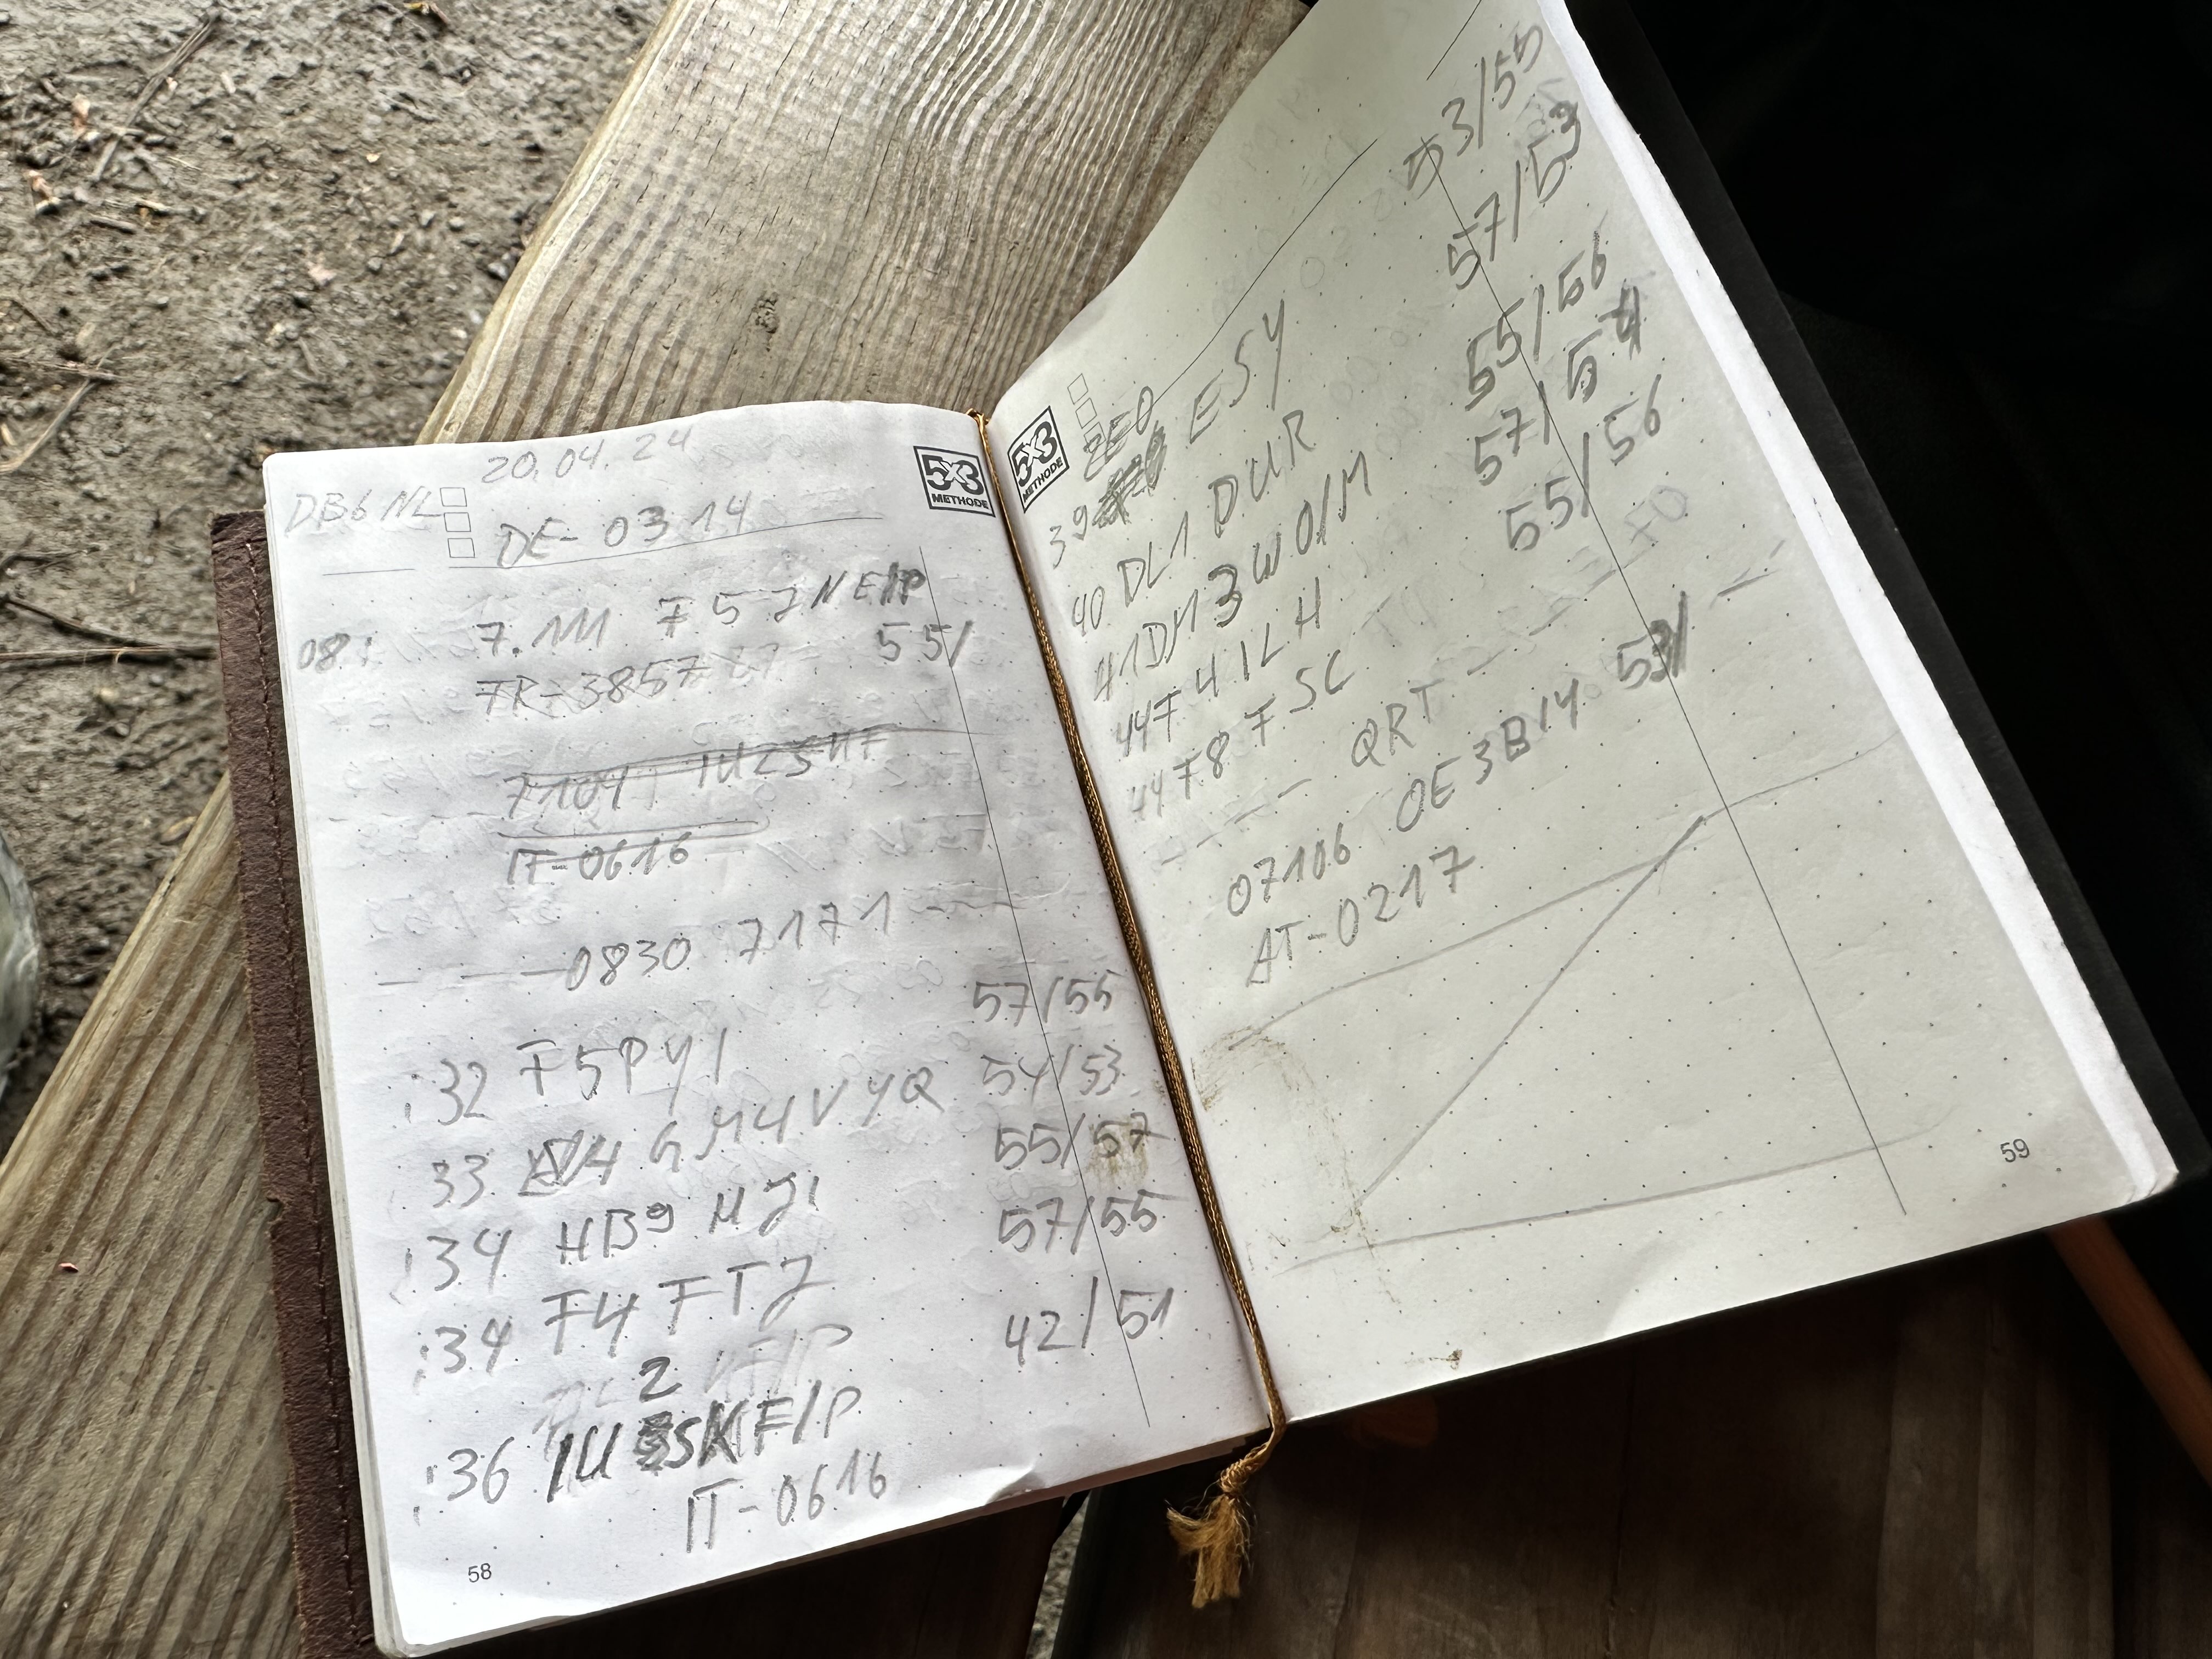 20.04.24
DB6NL
DE-0314
5x3
METHODE
08:
7.111 F5JNE/P
FR-3857 55/
7104 IU2SKF
IT-0616
0830 7171
:32 F5PYI 57/55
:33 GM4VYQ 54/53
:34 HB9MJI 55/57
:34 F4FTJ 57/55
2
:36 IU SKF/P 42/51
IT-0616
58
5x3
METHODE
39 EE0ESY 53/55
40 DL1DUR 57/53
41 DM3WO/M 55/56
44 F4ILH 57/54
44 F8FSC 55/56
QRT
07106 OE3BIY 53/
AT-0217
59